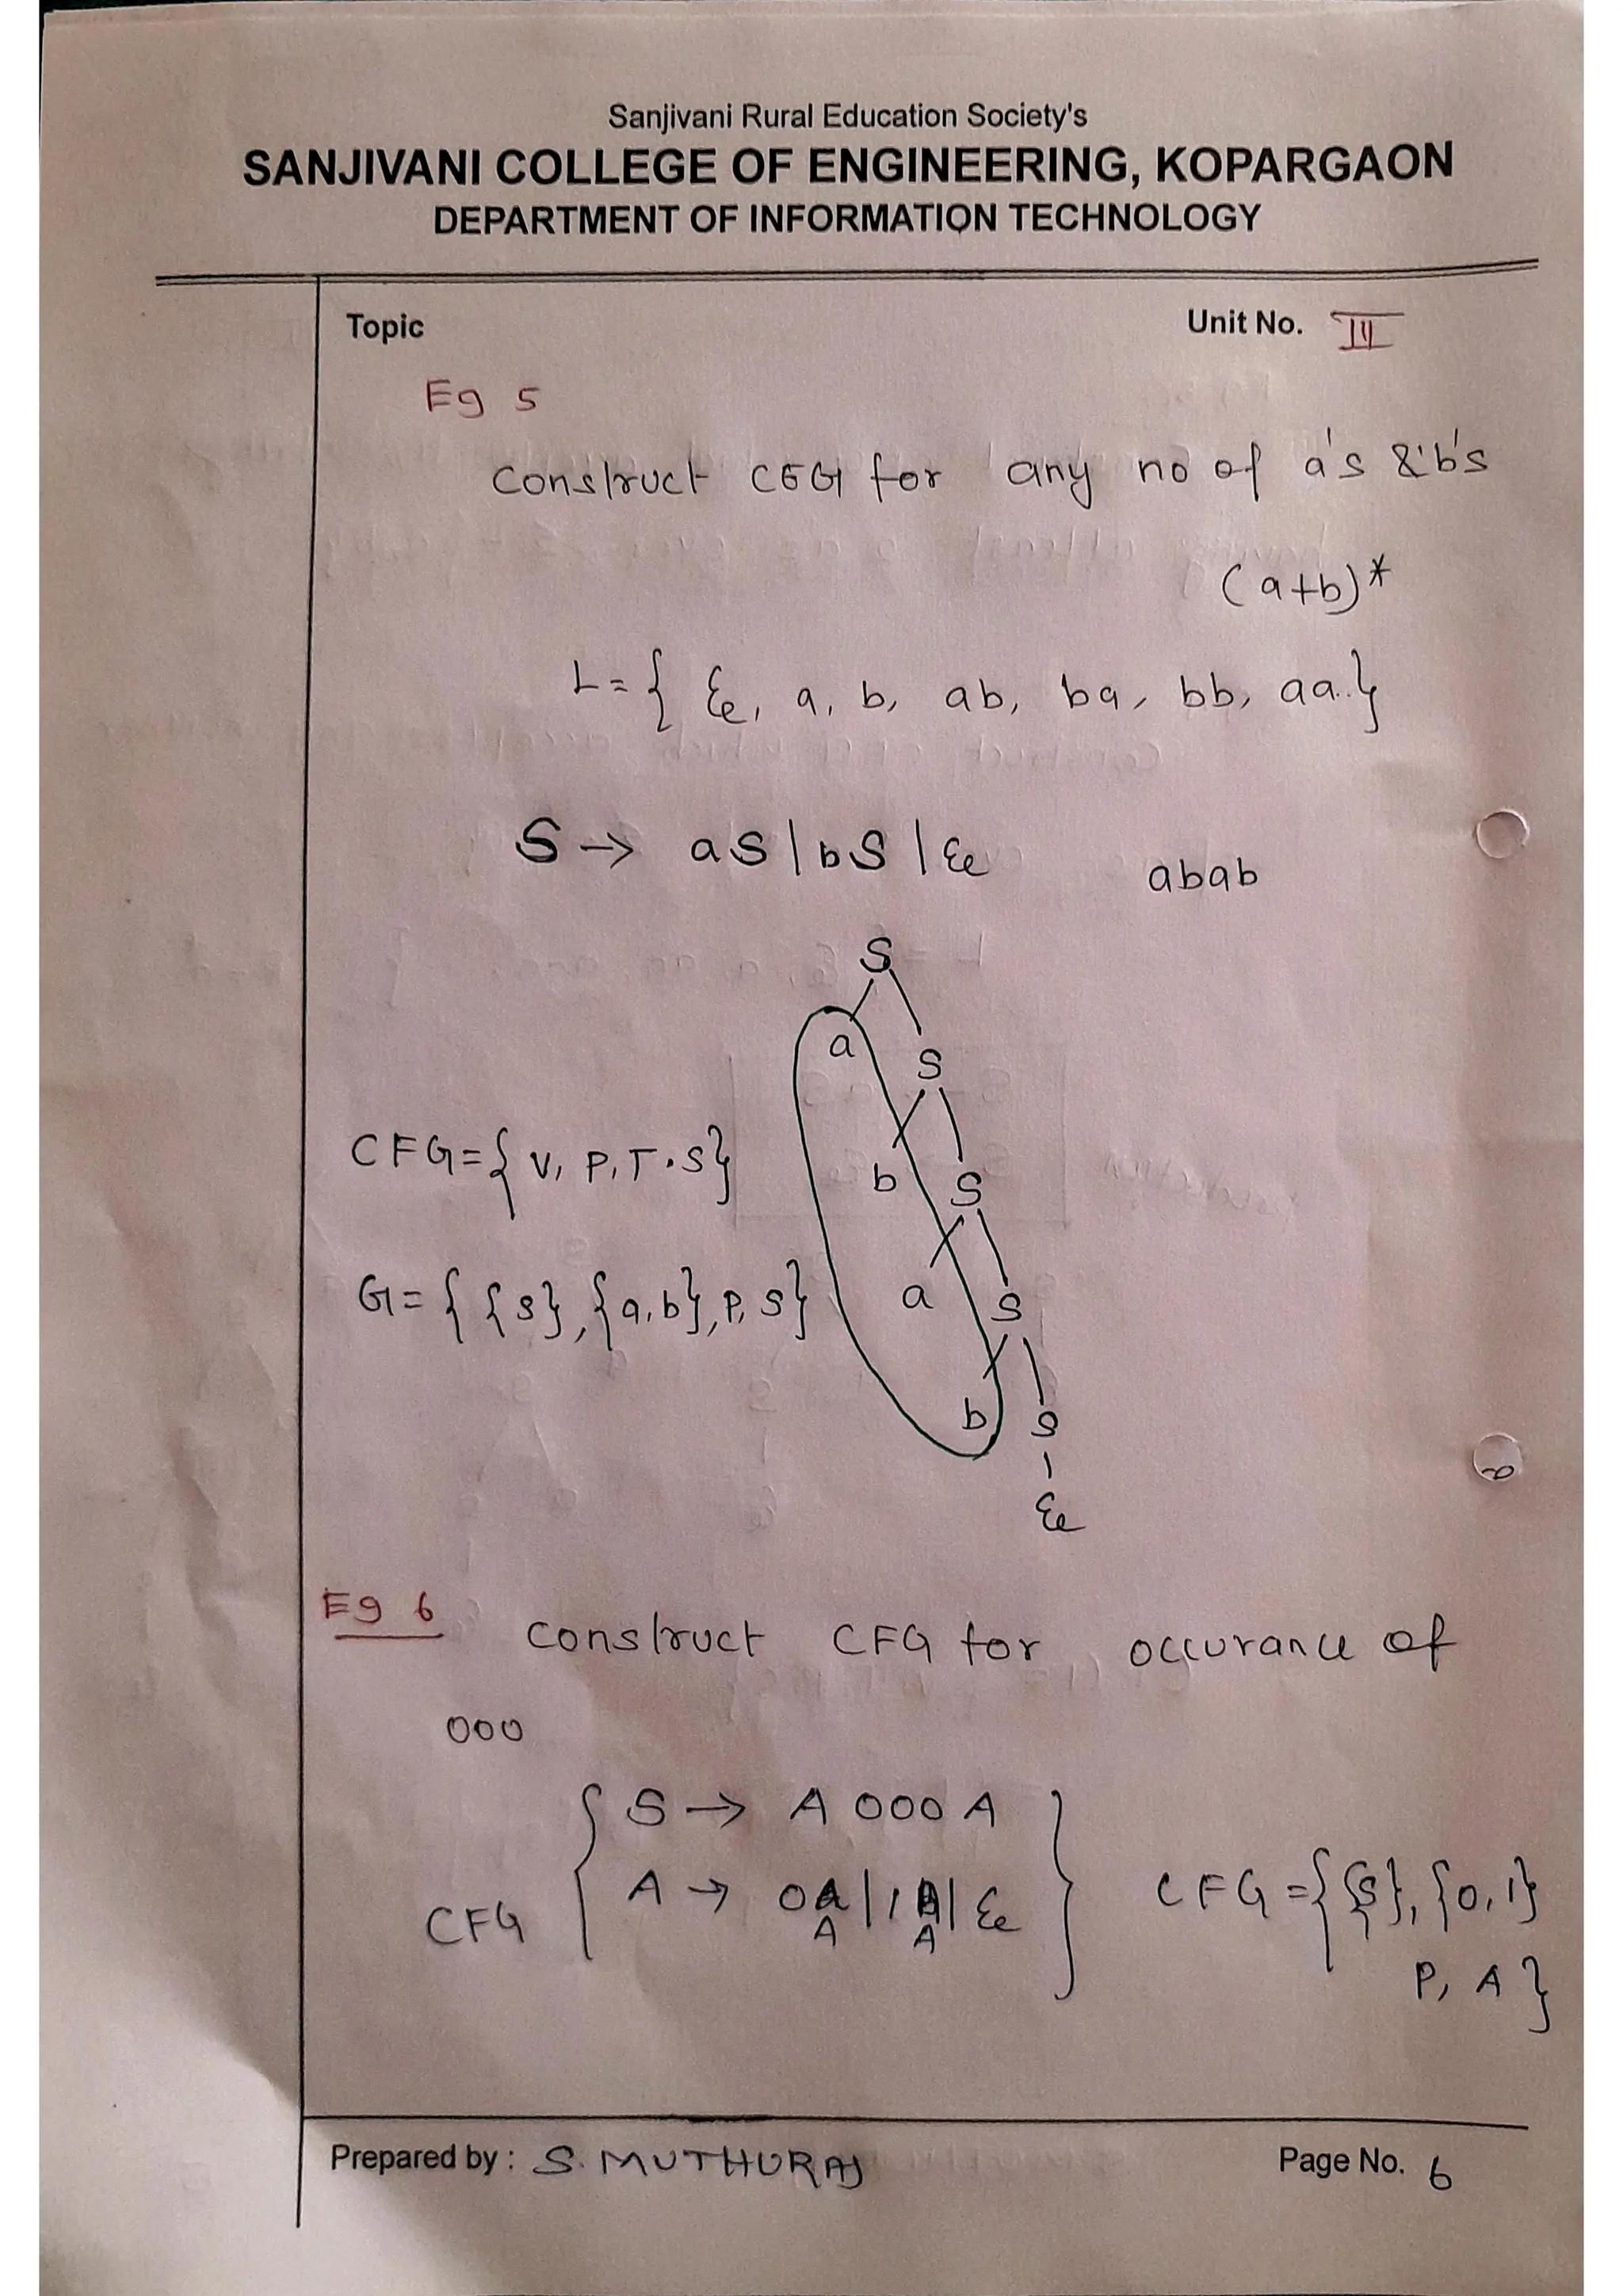 Sanjivani Rural Education Society's
SANJIVANI COLLEGE OF ENGINEERING, KOPARGAON
DEPARTMENT OF INFORMATION TECHNOLOGY
Topic
Unit No. III
Eg 5
Construct CFG for any no of a's & b's
(a+b)*
L = { ε, a, b, ab, ba, bb, aa..}
S → aS | bS | ε
abab
S
a S
b S
CFG = { V, P, T, S}
a S
G = { {S}, {a,b}, P, S}
b S
ε
Eg 6
Construct CFG for occurance of
000
S → A 000 A
A → 0A | 1A | ε
CFG
CFG = { {S}, {0,1}
P, A }
Prepared by : S. MUTHURAJ
Page No. 6